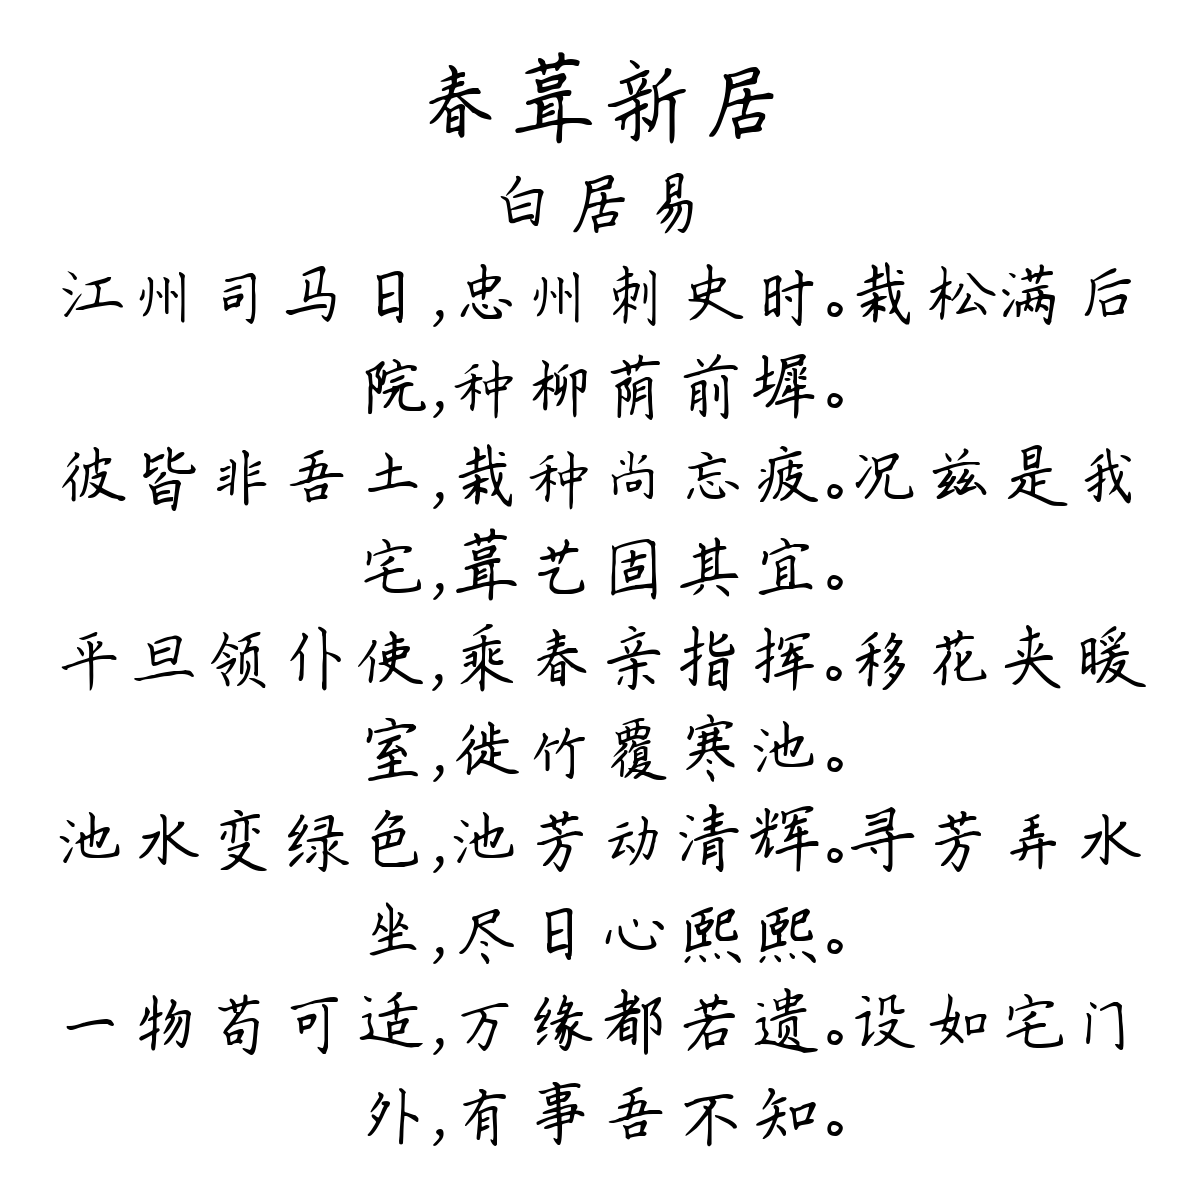 春葺新居
白居易
江州司马日,忠州刺史时。栽松满后
院,种柳荫前墀。
彼皆非吾土,栽种尚忘疲。况兹是我
宅,葺艺固其宜。
平旦领仆使,乘春亲指挥。移花夹暖
室,徙竹覆寒池。
池水变绿色,池芳动清辉。寻芳弄水
坐,尽日心熙熙。
一物苟可适,万缘都若遗。设如宅门
外,有事吾不知。